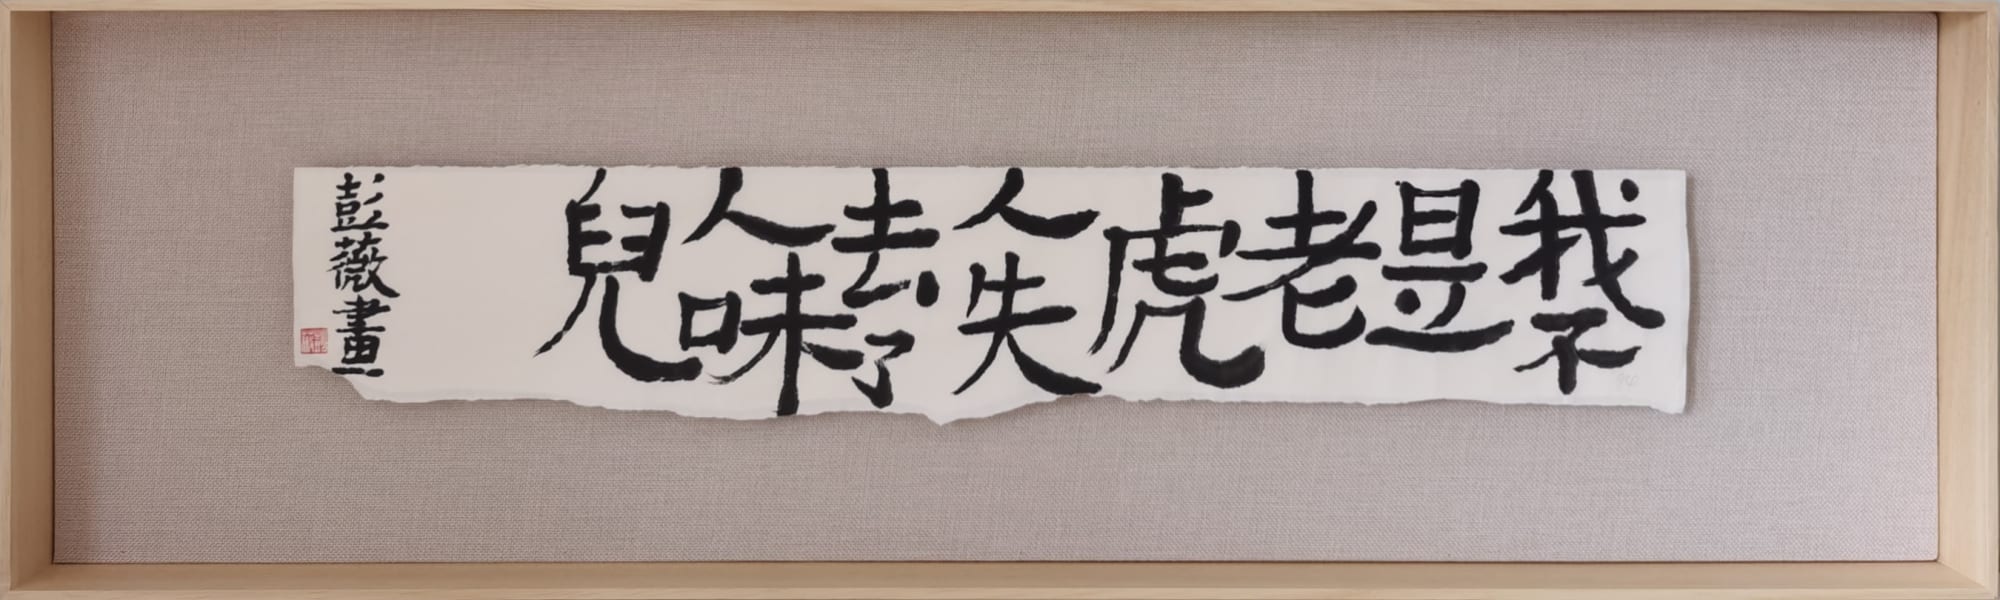 我不是老虎人失去了人味兒
彭薇畫